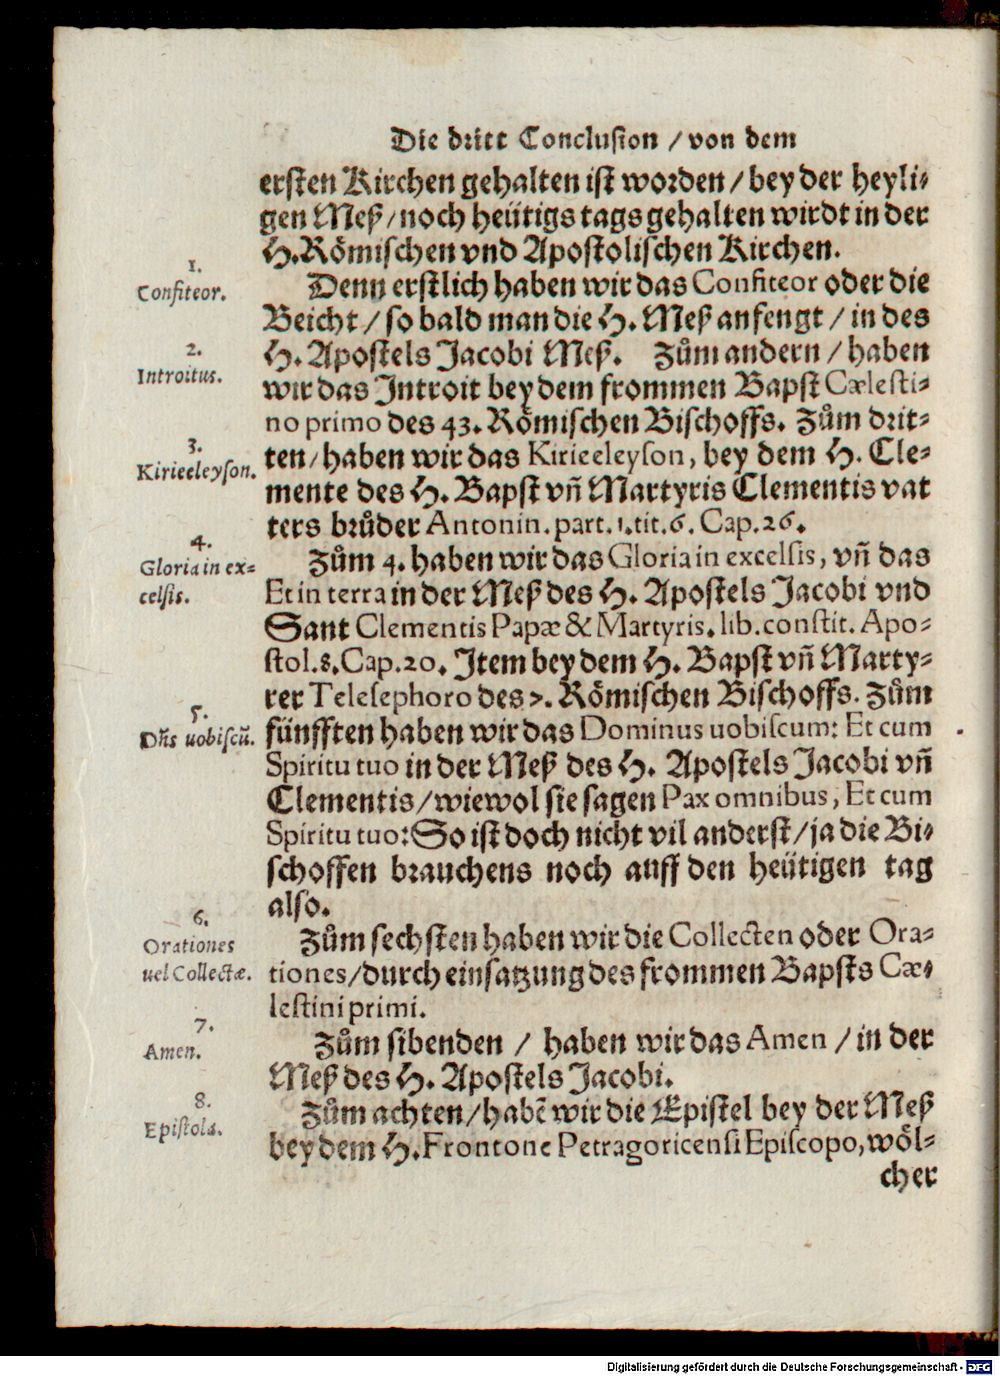 Die dritt Conclusion / von dem
ersten Kirchen gehalten ist worden / bey der heyli-
gen Meß / noch heütigs tags gehalten wirdt in der
H. Römischen vnd Apostolischen Kirchen.
1.
Confiteor.
Denn erstlich haben wir das Confiteor oder die
Beicht / so bald man die H. Meß anfengt / in des
2.
Introitus.
H. Apostels Jacobi Meß. Zům andern / haben
wir das Introit bey dem frommen Bapst Cælesti-
no primo des 43. Römischen Bischoffs. Zům drit-
3.
Kirieeleyson.
ten / haben wir das Kirieeleyson, bey dem H. Cle-
mente des H. Bapst vñ Martyris Clementis vat
ters brůder Antonin. part. 1. tit. 6. Cap. 26.
4.
Gloria in ex-
celsis.
Zům 4. haben wir das Gloria in excelsis, vñ das
Et in terra in der Meß des H. Apostels Jacobi vnd
Sant Clementis Papæ & Martyris. lib. constit. Apo-
stol. 8. Cap. 20. Item bey dem H. Bapst vñ Marty-
rer Telesephoro des 7. Römischen Bischoffs. Zům
5.
Dñs uobiscũ.
fünfften haben wir das Dominus uobiscum: Et cum
Spiritu tuo in der Meß des H. Apostels Jacobi vñ
Clementis / wiewol sie sagen Pax omnibus, Et cum
Spiritu tuo: So ist doch nicht vil anderst / ja die Bi-
schoffen brauchens noch auff den heütigen tag
also.
6.
Orationes
uel Collectæ.
Zům sechsten haben wir die Collecten oder Ora-
tiones / durch einsatzung des frommen Bapsts Cæ-
lestini primi.
7.
Amen.
Zům sibenden / haben wir das Amen / in der
Meß des H. Apostels Jacobi.
8.
Epistola.
Zům achten / habẽ wir die Epistel bey der Meß
bey dem H. Frontone Petragoricensi Episcopo, wöl-
cher
Digitalisierung gefördert durch die Deutsche Forschungsgemeinschaft - DFG